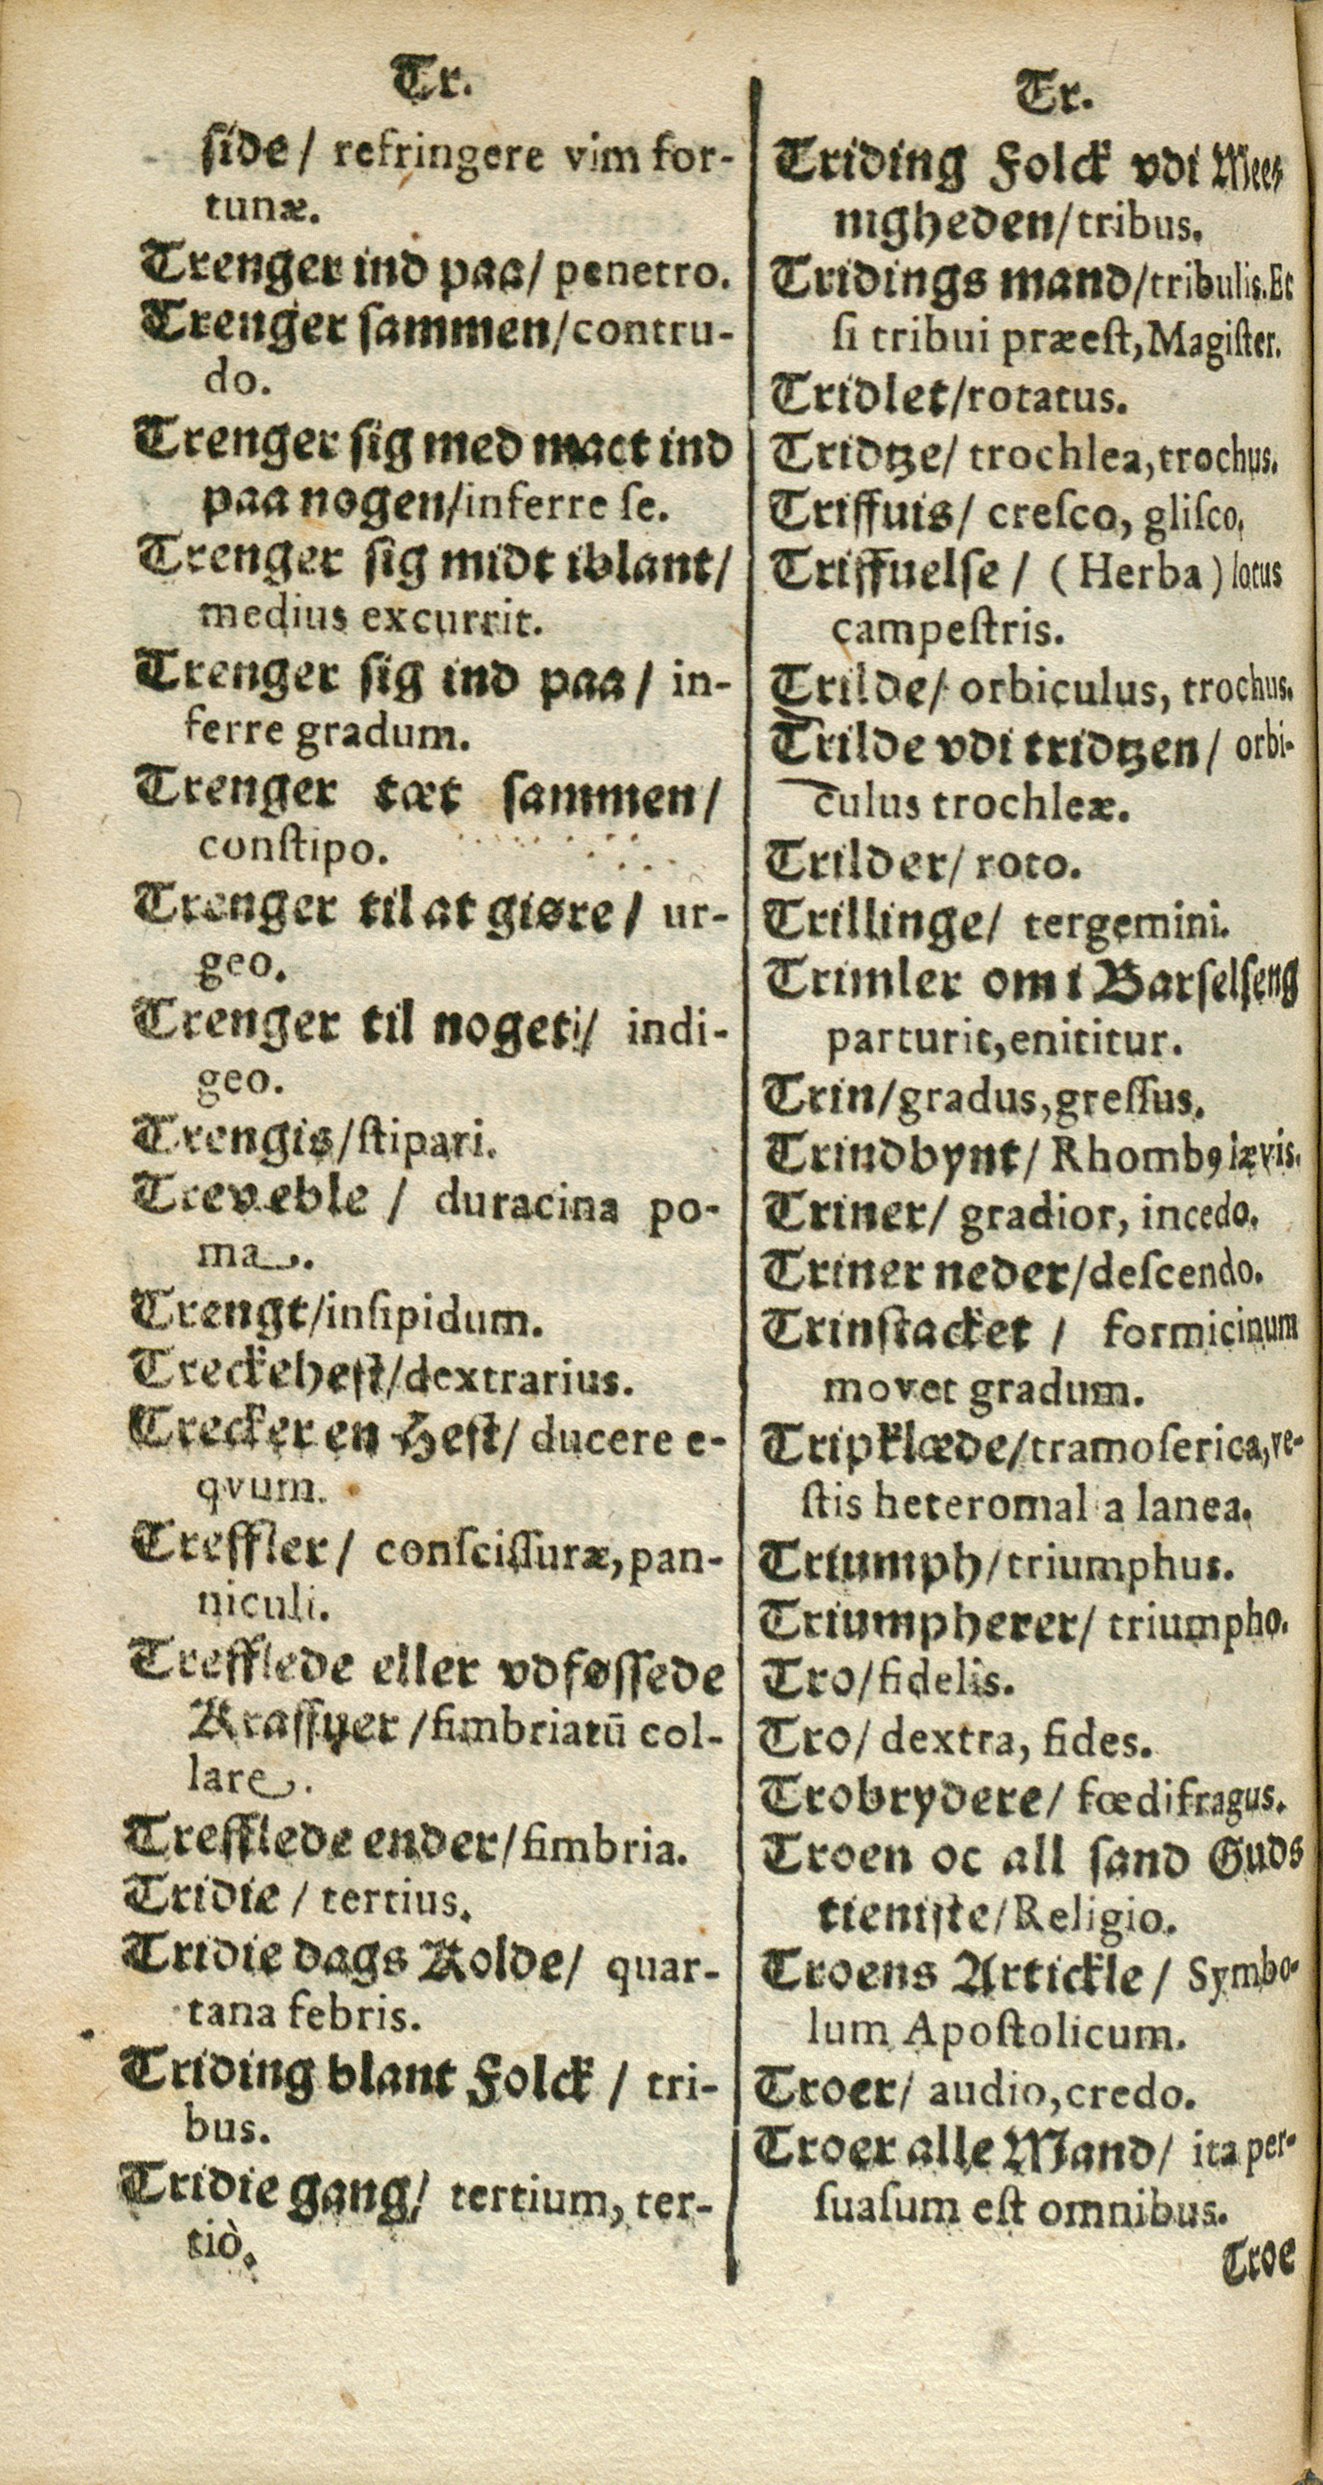 Tr.
ſide / refringere vim for-
tunæ.
Trenger ind paa/ penetro.
Trenger ſammen/contru-
do.
Trenger ſig med mact ind
paa nogen/inferre ſe.
Trenger ſig midt iblant/
medius excurrit.
Trenger ſig ind paa / in-
ferre gradum.
Trenger tæt ſammen /
conſtipo.
Trenger til at giøre / ur-
geo.
Trenger til noget / indi-
geo.
Trengis/ſtipari.
Trev eble / duracina po-
ma.
Trengt/inſipidum.
Treckeheſt/dextrarius.
Trecker en Heſt/ ducere e-
qvum.
Treffler / conſciſſuræ, pan-
niculi.
Trefflede eller vdføſſede
Kraffuer /fimbriatū col-
lare.
Trefflede ender/fimbria.
Tridie / tertius.
Tridie dags Kolde/ quar-
tana febris.
Triding blant Folck / tri-
bus.
Tridie gang/ tertium, ter-
tiò.
Tr.
Triding Folck vdi Mee-
nigheden/tribus.
Tridings mand/tribulis. Et
ſi tribui præeſt, Magiſter.
Tridlet/rotatus.
Tridtze/ trochlea, trochus.
Triffuis/ creſco, gliſco.
Triffuelſe / (Herba) lotus
campeſtris.
Trilde/ orbiculus, trochus.
Trilde vdi tridtzen / orbi-
culus trochleæ.
Trilder/ roto.
Trillinge/ tergemini.
Trimler om i Barſelſeng
parturit, enititur.
Trin/gradus, greſſus.
Trindbynt/ Rhombꝰ lævis.
Triner/ gradior, incedo.
Triner neder/deſcendo.
Trinſtacket / formicinum
movet gradum.
Tripklæde/tramoſerica, ve-
ſtis heteromal a lanea.
Triumph/triumphus.
Triumpherer/ triumpho.
Tro/fidelis.
Tro/ dextra, fides.
Trobrydere/ fœdifragus.
Troen oc all ſand Guds
tieniſte/Religio.
Troens Artickle / Symbo-
lum Apoſtolicum.
Troer/ audio, credo.
Troer alle Mand/ ita per-
ſuaſum eſt omnibus.
Troe